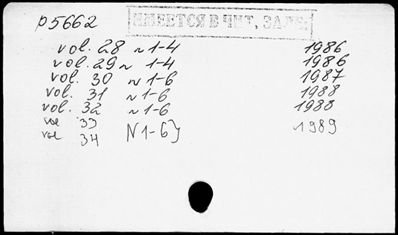 p5662
ИМЕЕТСЯ В ЧИТ, ЗАЛЕ.
vol. 28 N 1-4 1986
vol. 29 N 1-4 1986
vol. 30 N 1-6 1987
vol. 31 N 1-6 1988
vol. 32 N 1-6 1988
vol 33
vol 34 N 1-6} 1989